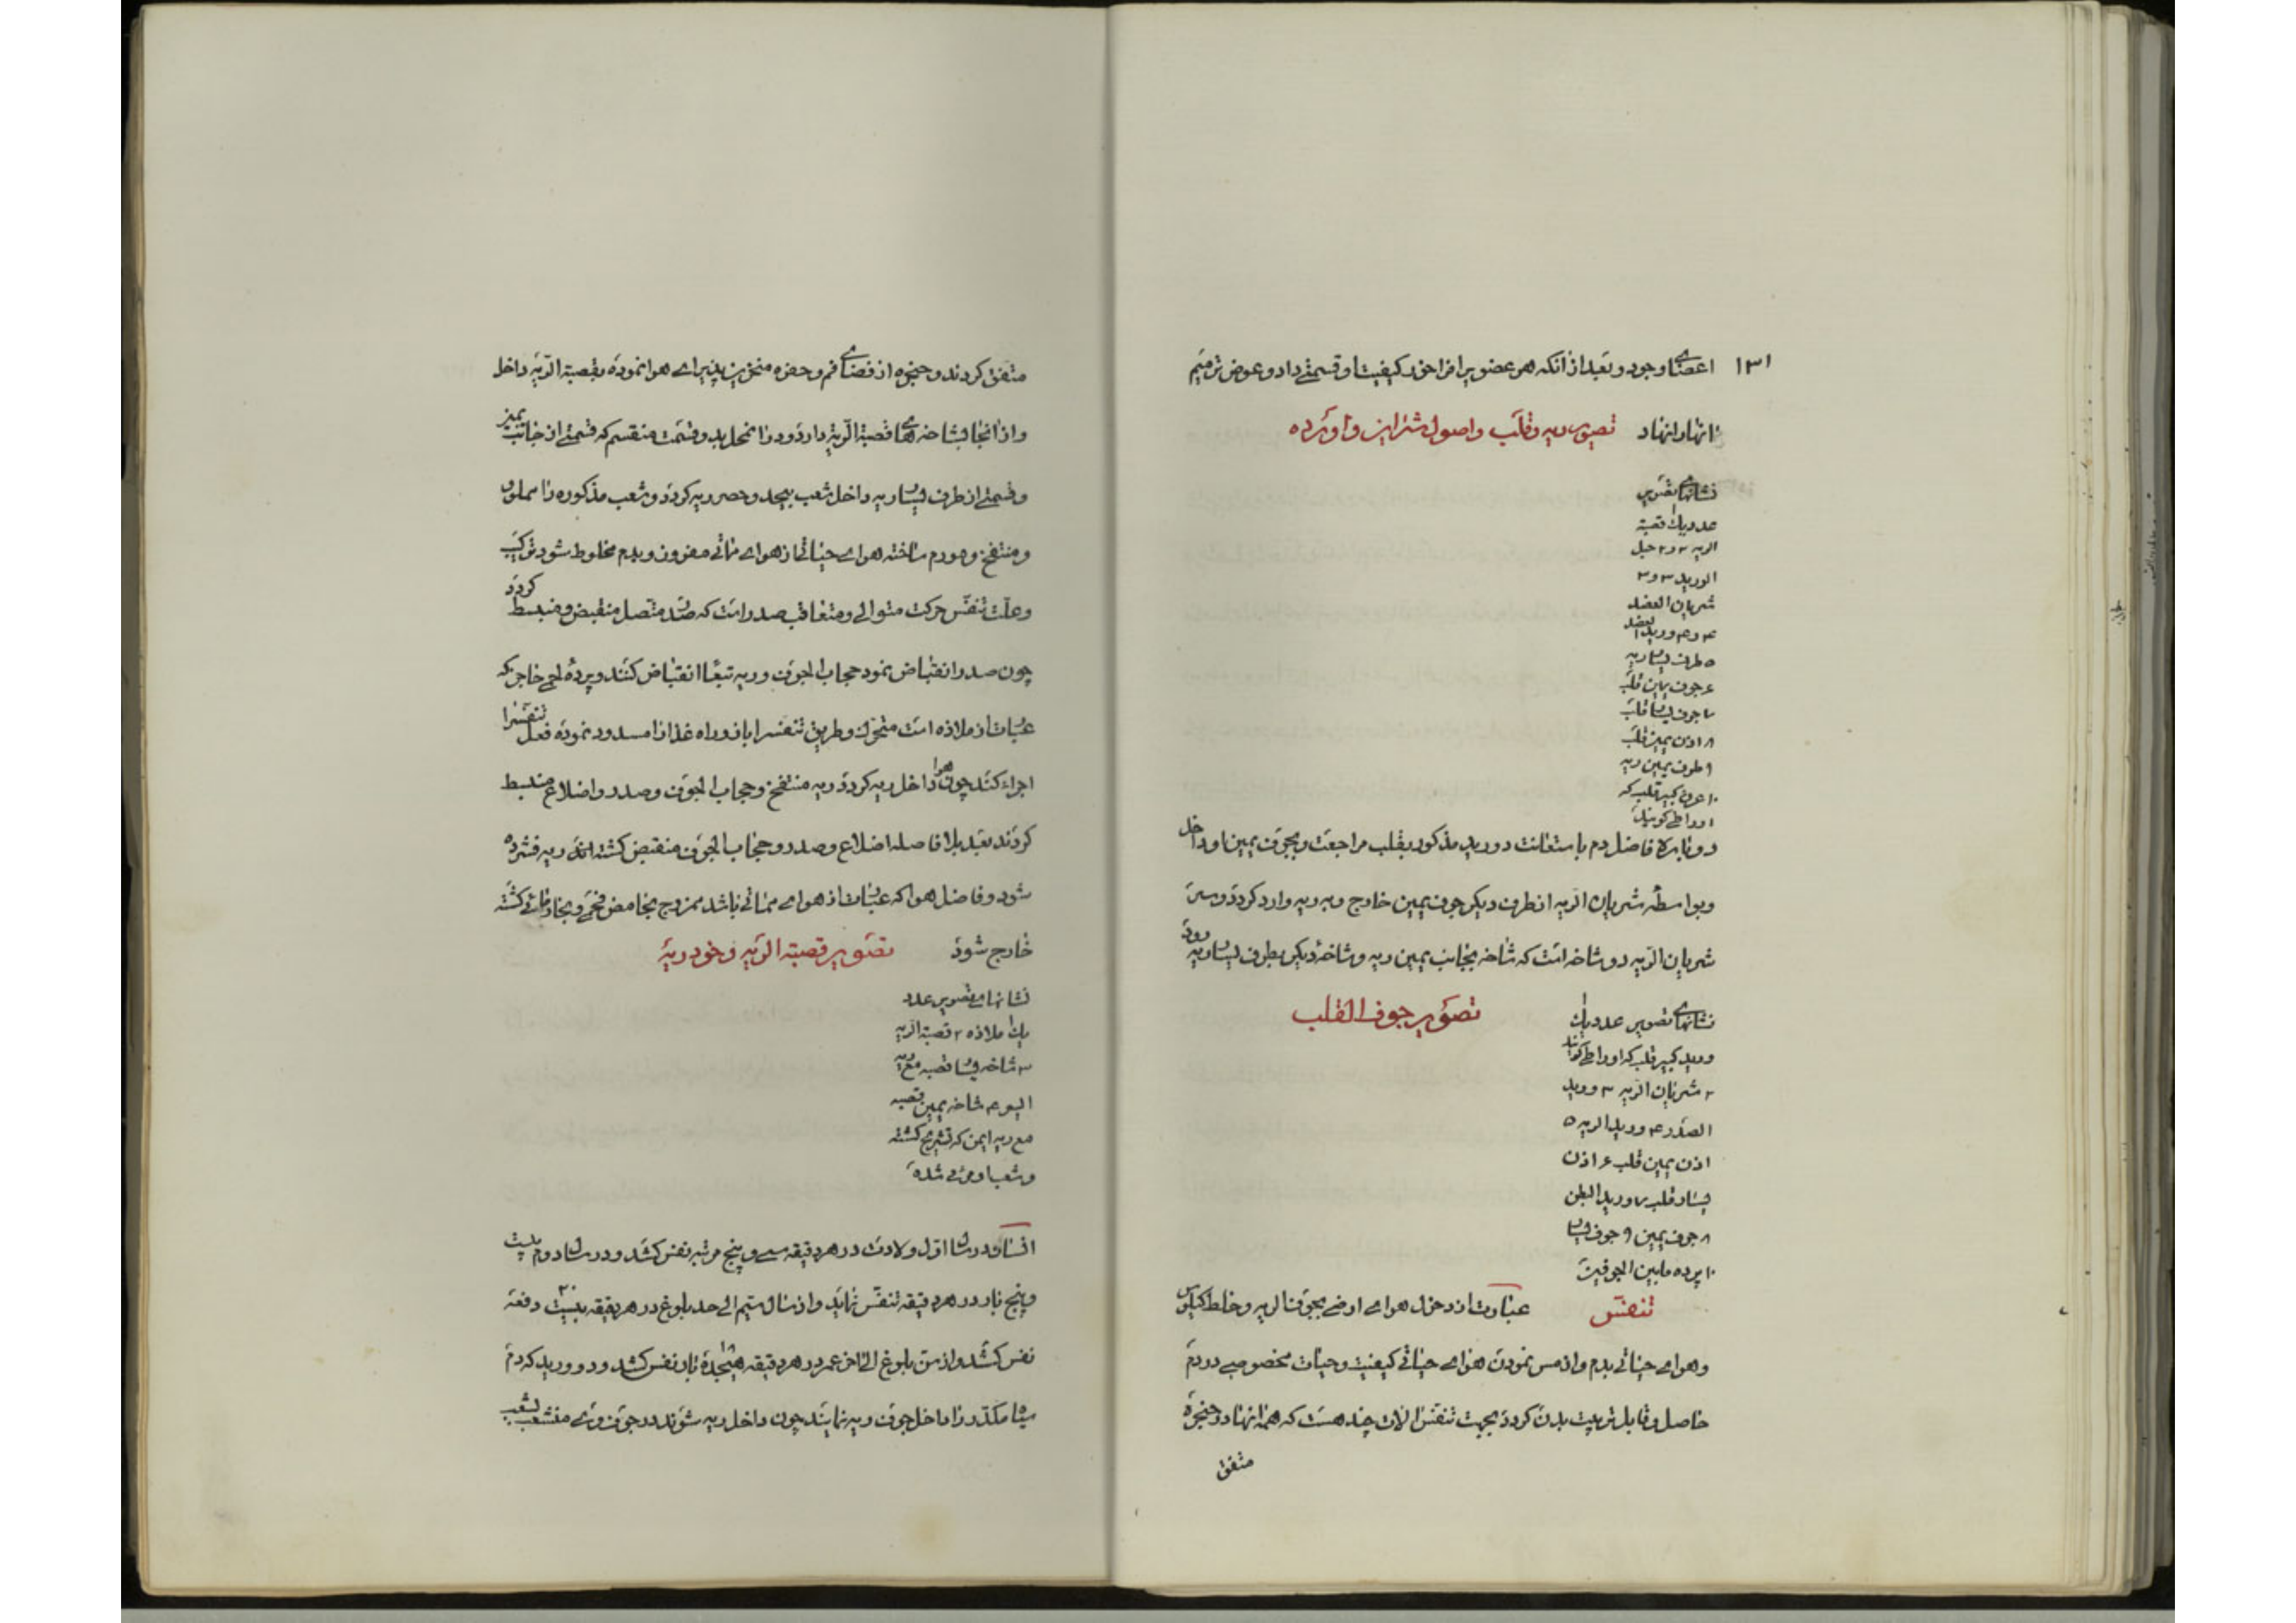 ۱۳۱
اعضای وجود و بعد از آنکه هر عضو برا فراخور کیفیت او قسمتی داد و عوض ترمیم
انهار انهاد تصویر ریه و قلب و اصول شرائین و اورده
نشانهای تصویر
عدد یك قصبة
الریه ۲ و ۲ حبل
الورید ۳ و ۳
شریان العضد
۴ و ۴ ورید العضد
۵ طرف یسار ریه
۶ جوف یمین قلب
۷ جوف یسار قلب
۸ اذن یمین قلب
۹ طرف یمین ریه
۱۰ عرق کبیر قلب که
اورا طی کویند
دوباره فاضل دم باستعانت دو ورید مذکور بقلب مراجعت و بجوف یمین او داخل
وبواسطه شریان الریه از طرف دیگر جوف یمین خارج و به ریه وارد کردد و سر
شریان الریه دو شاخه است که شاخه بجانب یمین ریه و شاخه دیکر بطرف یسار ریه رود
تصویر جوف القلب
نشانهای تصویر عدد یك
ورید کبیر قلب که اورا طی کویند
۲ شریان الریه ۳ ورید
الصدر ۴ ورید الریه ۵
اذن یمین قلب ۶ اذن
یسار قلب ۷ ورید البطن
۸ جوف یمین ۹ جوف یسار
۱۰ پرده مابین الجوفین
تنفس عبارت از دخول هوای ارضی بجوف الریه و خلط کیلوس
وهوای حیاتی بدم واز مس نمودن هوای حیاتی کیفیت و حیات مخصوصی در دم
حاصل و قابل تربیت بدن کردد بجهت تنفس الات چند هست که همه انها در حنجره
متفق
متفق کردند و حنجره از فضای فم و حفره منخرین پذیرای هوا نموده بقصبة الریه داخل
واز انجا بشاخه های قصبة الریه وارد و در انمحل بدو قسمت منقسم که قسمتی از جانب یمین
و قسمتی از طرف یسار ریه داخل شعب بیحد و حصر ریه کردد و شعب مذکوره را مملو
و منتفخ و مورم ساخته هوای حیاتی از هوای مائی مفروز و بدم مخلوط شود ترکیب
وعلت تنفس حرکت متوالی و متعاقب صدر است که صدر متصل منقبض و منبسط کردد
چون صدر انقباض نمود حجاب الجوف و ریه تبعاً انقباض کنند و پرده لحمی خارجی که
عبارت از ملاذه است متحرك و طریق تنفس را باز و راه غذا را مسدود نموده فعل تنفس را
اجراء کند چون هوا داخل ریه کردد ریه منتفخ و حجاب الجوف و صدر و اضلاع منبسط
کردند بعد بلافاصله اضلاع و صدر و حجاب الجوف منقبض کشته اند ریه فشرده
شود و فاضل هوا که عبارت از هوای مماتی باشد ممزوج بحامض فحمی و بخار مائی کشته
خارج شود تصویر قصبة الریه و خود ریه
نشانهای تصویر عدد
یك ملاذه ۲ قصبة الریه
۳ شاخه یسار قصبه مع ریه
۴ شاخه یمین قصبه
مع ریه ایمن که تشریح کشته
و شعب او مرئی شده
انسان در سال اول ولادت در هر دقیقه سی و پنج مرتبه نفس کشد و در سال دوم بیست
و پنج بار در هر دقیقه تنفس نماید و از سال سیم الی حد بلوغ در هر دقیقه بیست دفعه
نفس کشد و از سن بلوغ الی اخر عمر در هر دقیقه هیجده بار نفس کشد و دو ورید که دم
سیاه مکدر را داخل جوف ریه نمایند چون داخل ریه شوند در جوف وی منشعب بشعب